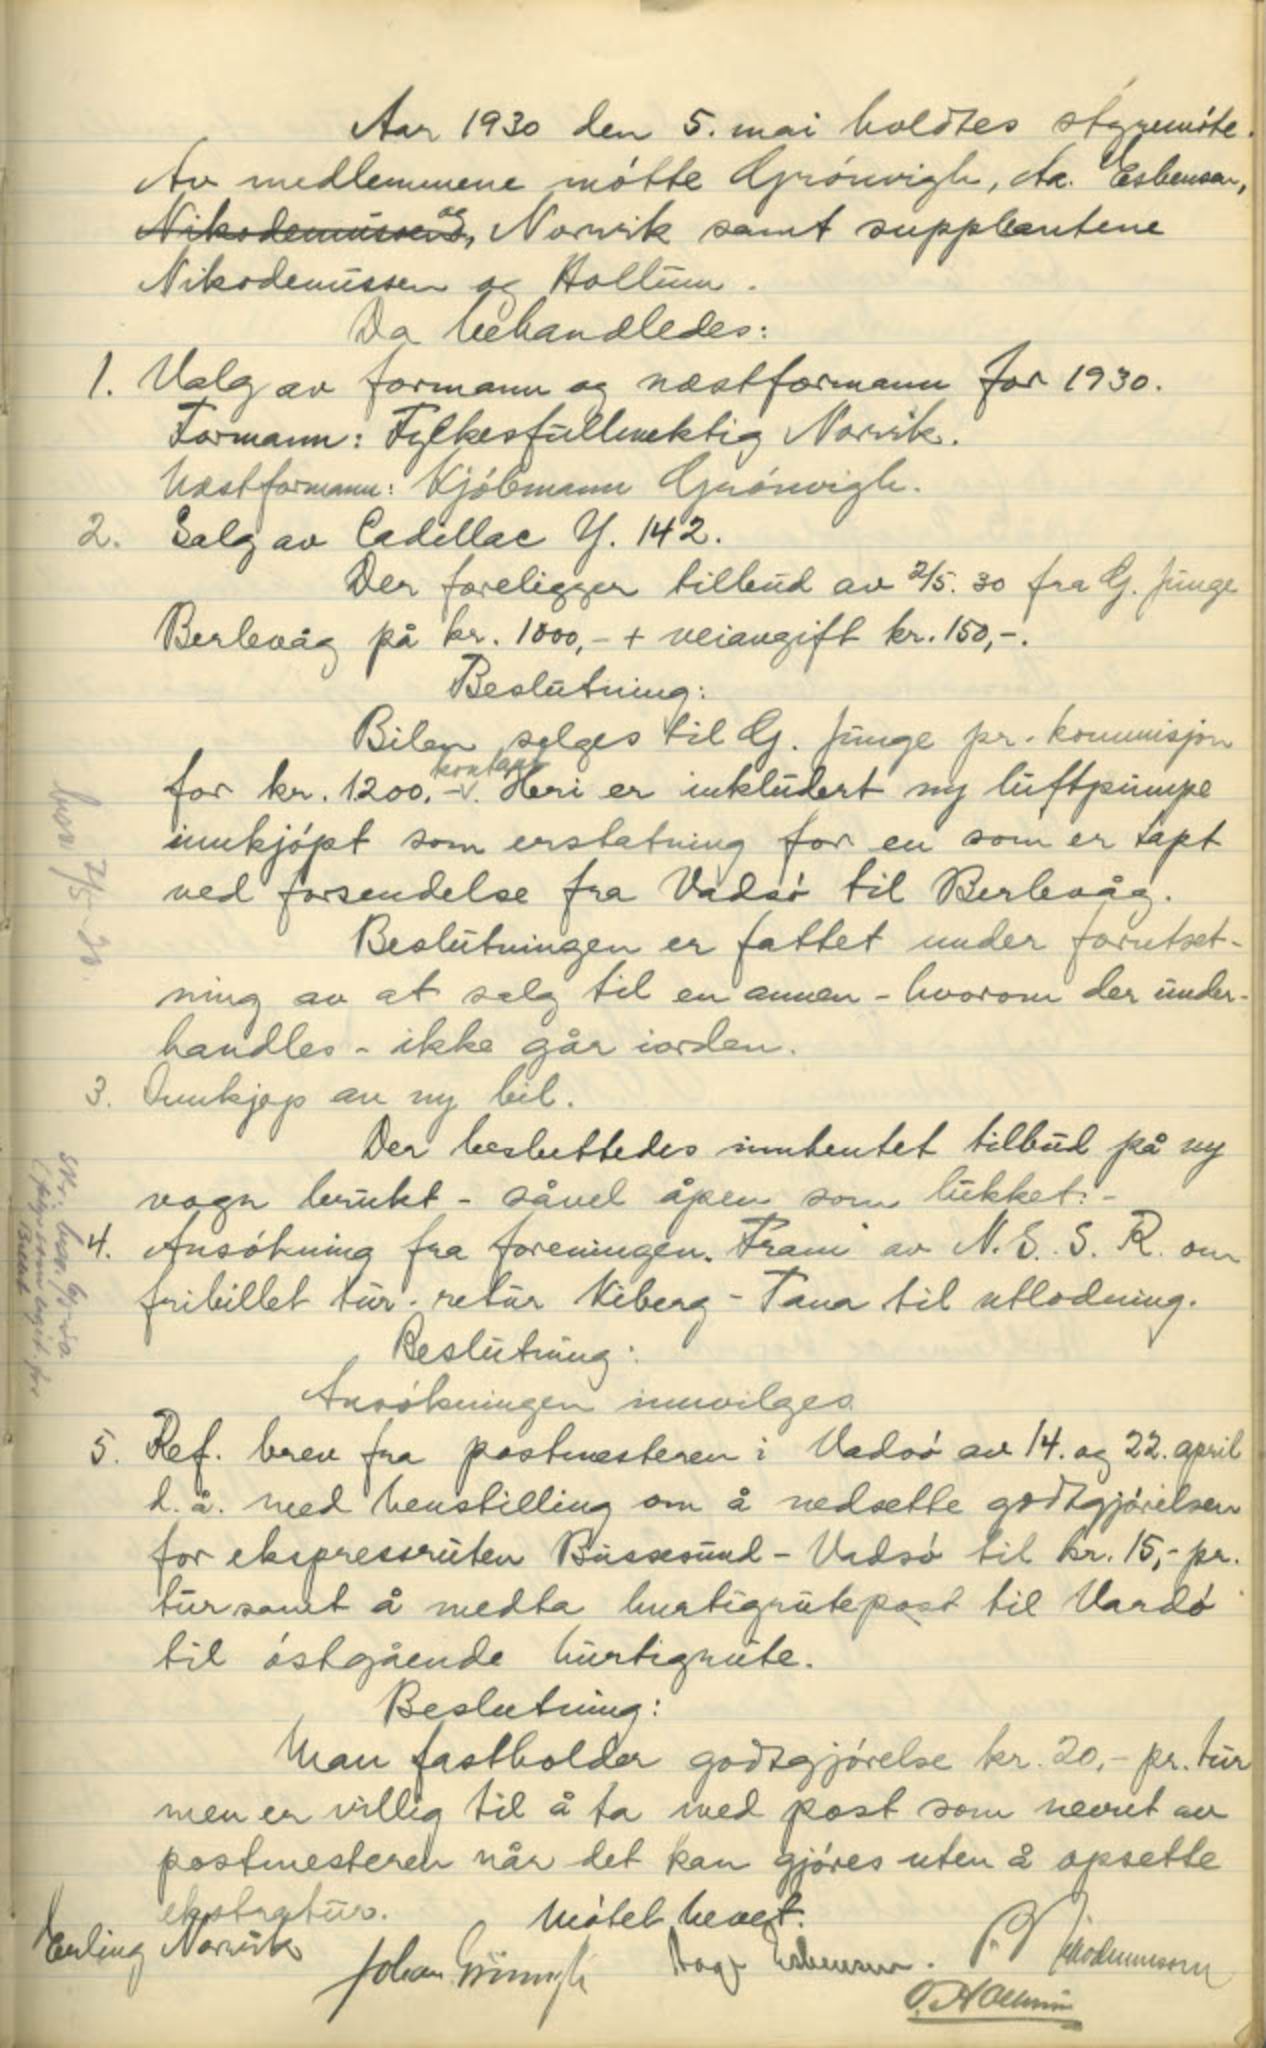 Aar 1930 den 5. mai holdtes styremöte.
Av medlemmene mötte Grönvigh, Aa. Esbensen,
Nikodemussen, og Norvik samt supplentene
Nikodemussen og Hollum.
Da behandledes:
1. Valg av formann og næstformann for 1930.
Formann: Fylkesfullmektig Norvik.
Næstformann: Kjöbmann Grönvigh.
2. Salg av Cadillac Y. 142.
Der foreligger tilbud av 2/5. 30 fra G. Junge
Berlevåg på kr. 1000,- + veiavgift kr. 150,-.
Beslutning:
Bilen selges til G. Junge pr. kommisjon
for kr. 1200.- kontant. Heri er inkludert ny luftpumpe
innkjöpt som erstatning for en som er tapt
ved forsendelse fra Vadsö til Berlevåg.
Beslutningen er fattet under forutset-
ning av at salg til en annen - hvorom der under-
handles - ikke går iorden.
3. Innkjøp av ny bil.
Der besluttedes innhentet tilbud på ny
vogn brukt - såvel åpen som lukket. -
4. Ansökning fra foreningen "Fram" av N. S. S. R. om
fribillet tur-retur Kiberg - Tana til utlodning.
Beslutning:
Ansökningen innvilges
5. Ref. brev fra postmesteren i Vadsö av 14. og 22. april
d. å. med henstilling om å nedsette godtgjörelsen
for ekspressruten Bussesund - Vadsö til kr. 15,- pr.
tur samt å medta hurtigrutepost til Vardö
til östgående hurtigrute.
Beslutning:
Man fastholder godtgjörelse kr. 20,- pr. tur
men er villig til å ta med post som nevnt av
postmesteren når det kan gjöres uten å opsette
ekstratur.
Mötet hevet.
Erling Norvik
Johan Grönvigh
Aage Esbensen.
P. Nikodemussen
P. Hollum
brev 7/5-30.
skr. brev. 6/5-30